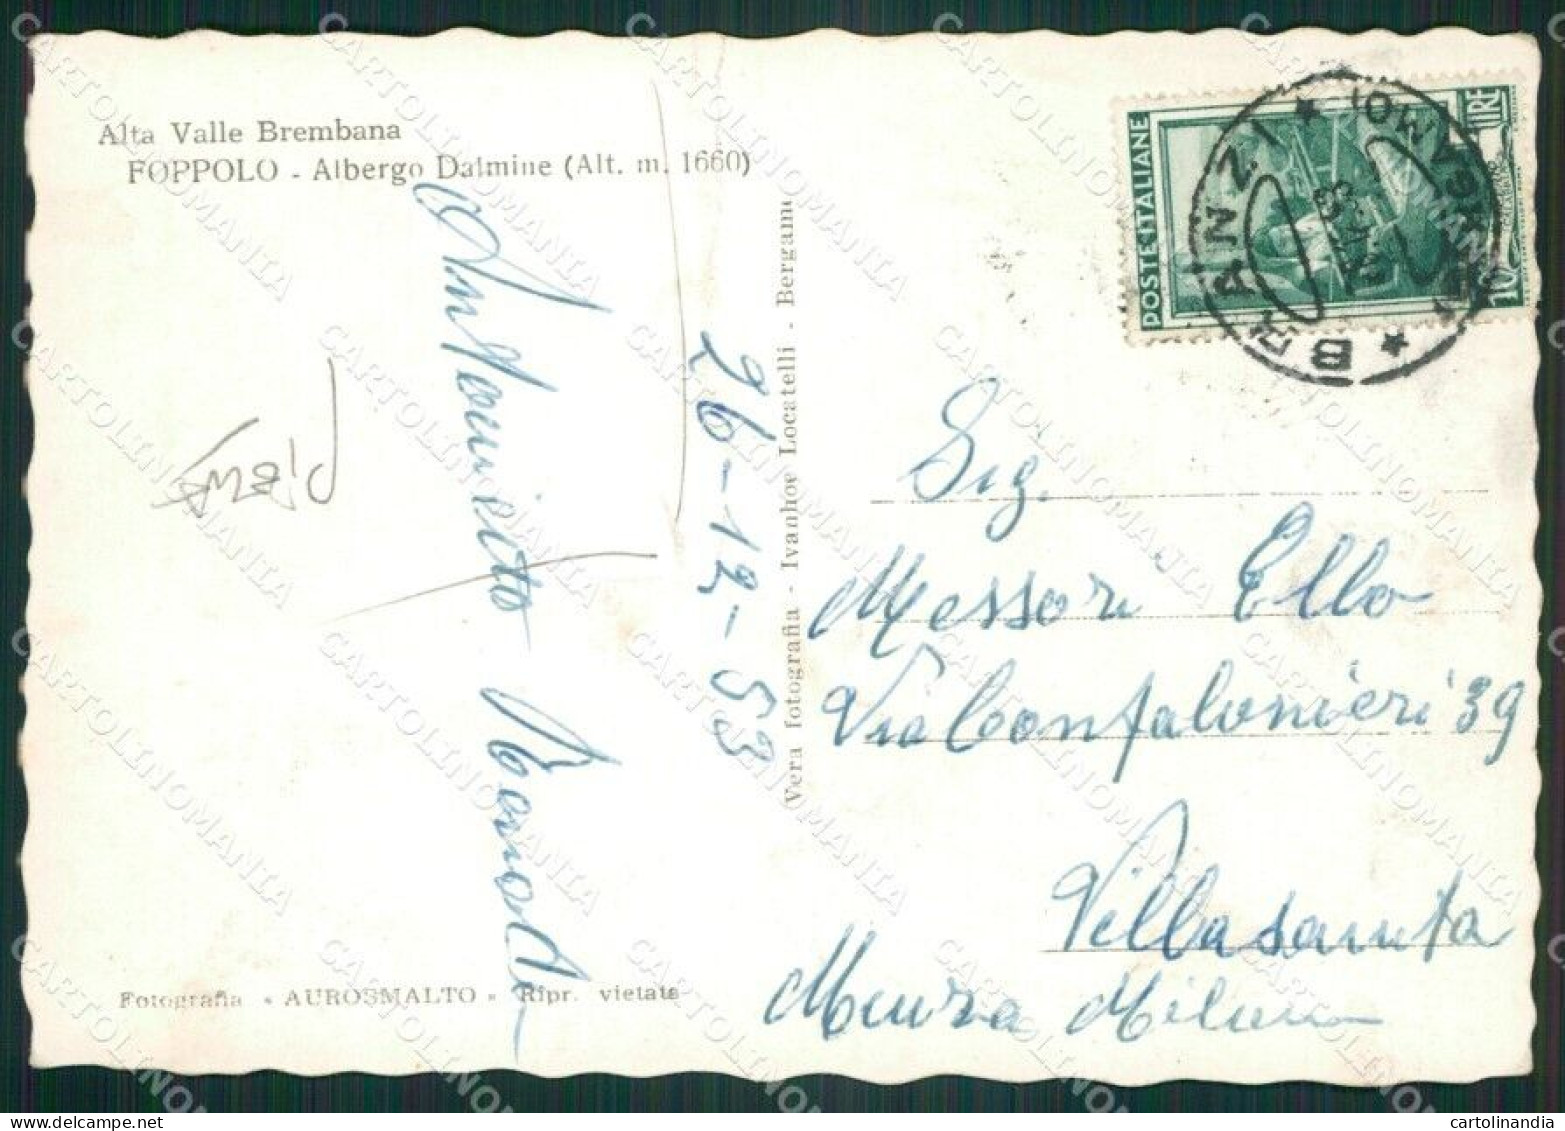 Alta Valle Brembana
FOPPOLO - Albergo Dalmine (Alt. m. 1660)
Antonietto
26-12-53
Vera fotografia - Ivanhoe Locatelli - Bergamo
Fotografia « AUROSMALTO » Ripr. vietata
POSTE ITALIANE
10 LIRE
BRANZI
Sig.
Messori Ello
Via Confalonieri 39
Villasanta
Milano
CARTOLINOMANIA
cartolinandia